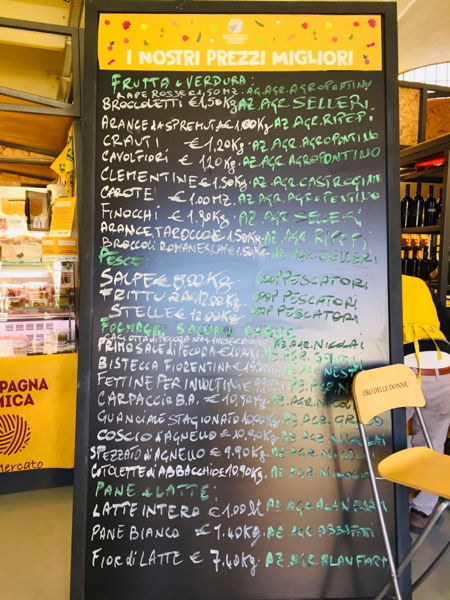 I NOSTRI PREZZI MIGLIORI
FRUTTA e VERDURA:
RAPE ROSSE 1,50 MZ. AG. AGR. AGROPONTINO
BROCCOLETTI € 1,50 Kg. AZ. AGR. SELLERI
ARANCE da SPREMUTA € 1.00 Kg. AZ. AGR. RIPEPI
CRAUTI € 1.20 Kg. AZ. AGR. AGROPONTINO
CAVOLFIORI € 1,20 Kg. AZ. AGR. AGROPONTINO
CLEMENTINE € 1.50 Kg. AZ. AGR. CASTROGIOVANNI
CAROTE € 1.00 MZ. AZ. AGR. AGROPONTINO
FINOCCHI € 1.90 Kg. AZ. AGR. SELLERI
ARANCE TAROCCO € 1.50 Kg. AZ. AGR. RIPEPI
BROCCOLI ROMANESCHI € 1.50 Kg. AZ. AGR. SELLERI
PESCE:
SALPE € 8,00 Kg. COOP PESCATORI
FRITTURA € 12.00 Kg. COOP PESCATORI
STELLE € 12.00 Kg. COOP PESCATORI
FORMAGGI SALUMI CARNE
AZ. AGR. NICOLAI
PRIMO SALE di PECORA €
BISTECCA FIORENTINA €
FETTINE PER INVOLTINI €
CARPACCIO B.A. € 10,90 Kg. AZ. AGR. NICOLAI
GUANCIALE STAGIONATO AZ. AGR.
COSCIO d'AGNELLO € 10,90 Kg. AZ. AGR. NICOLAI
SPEZZATO d'AGNELLO € 9.90 Kg. AZ. AGR. NICOLAI
COTOLETTE d'ABBACCHIO € 10,90 Kg. AZ. AGR. NICOLAI
PANE e LATTE:
LATTE INTERO € 1.00 Lt AZ. AGR. ALAN FARM
PANE BIANCO € 1.40 Kg. AZ. AGR.
FIOR di LATTE € 7,40 Kg. AZ. AGR. ALAN FARM
ORO DELLE DONNE
MPAGNA
MICA
Mercato